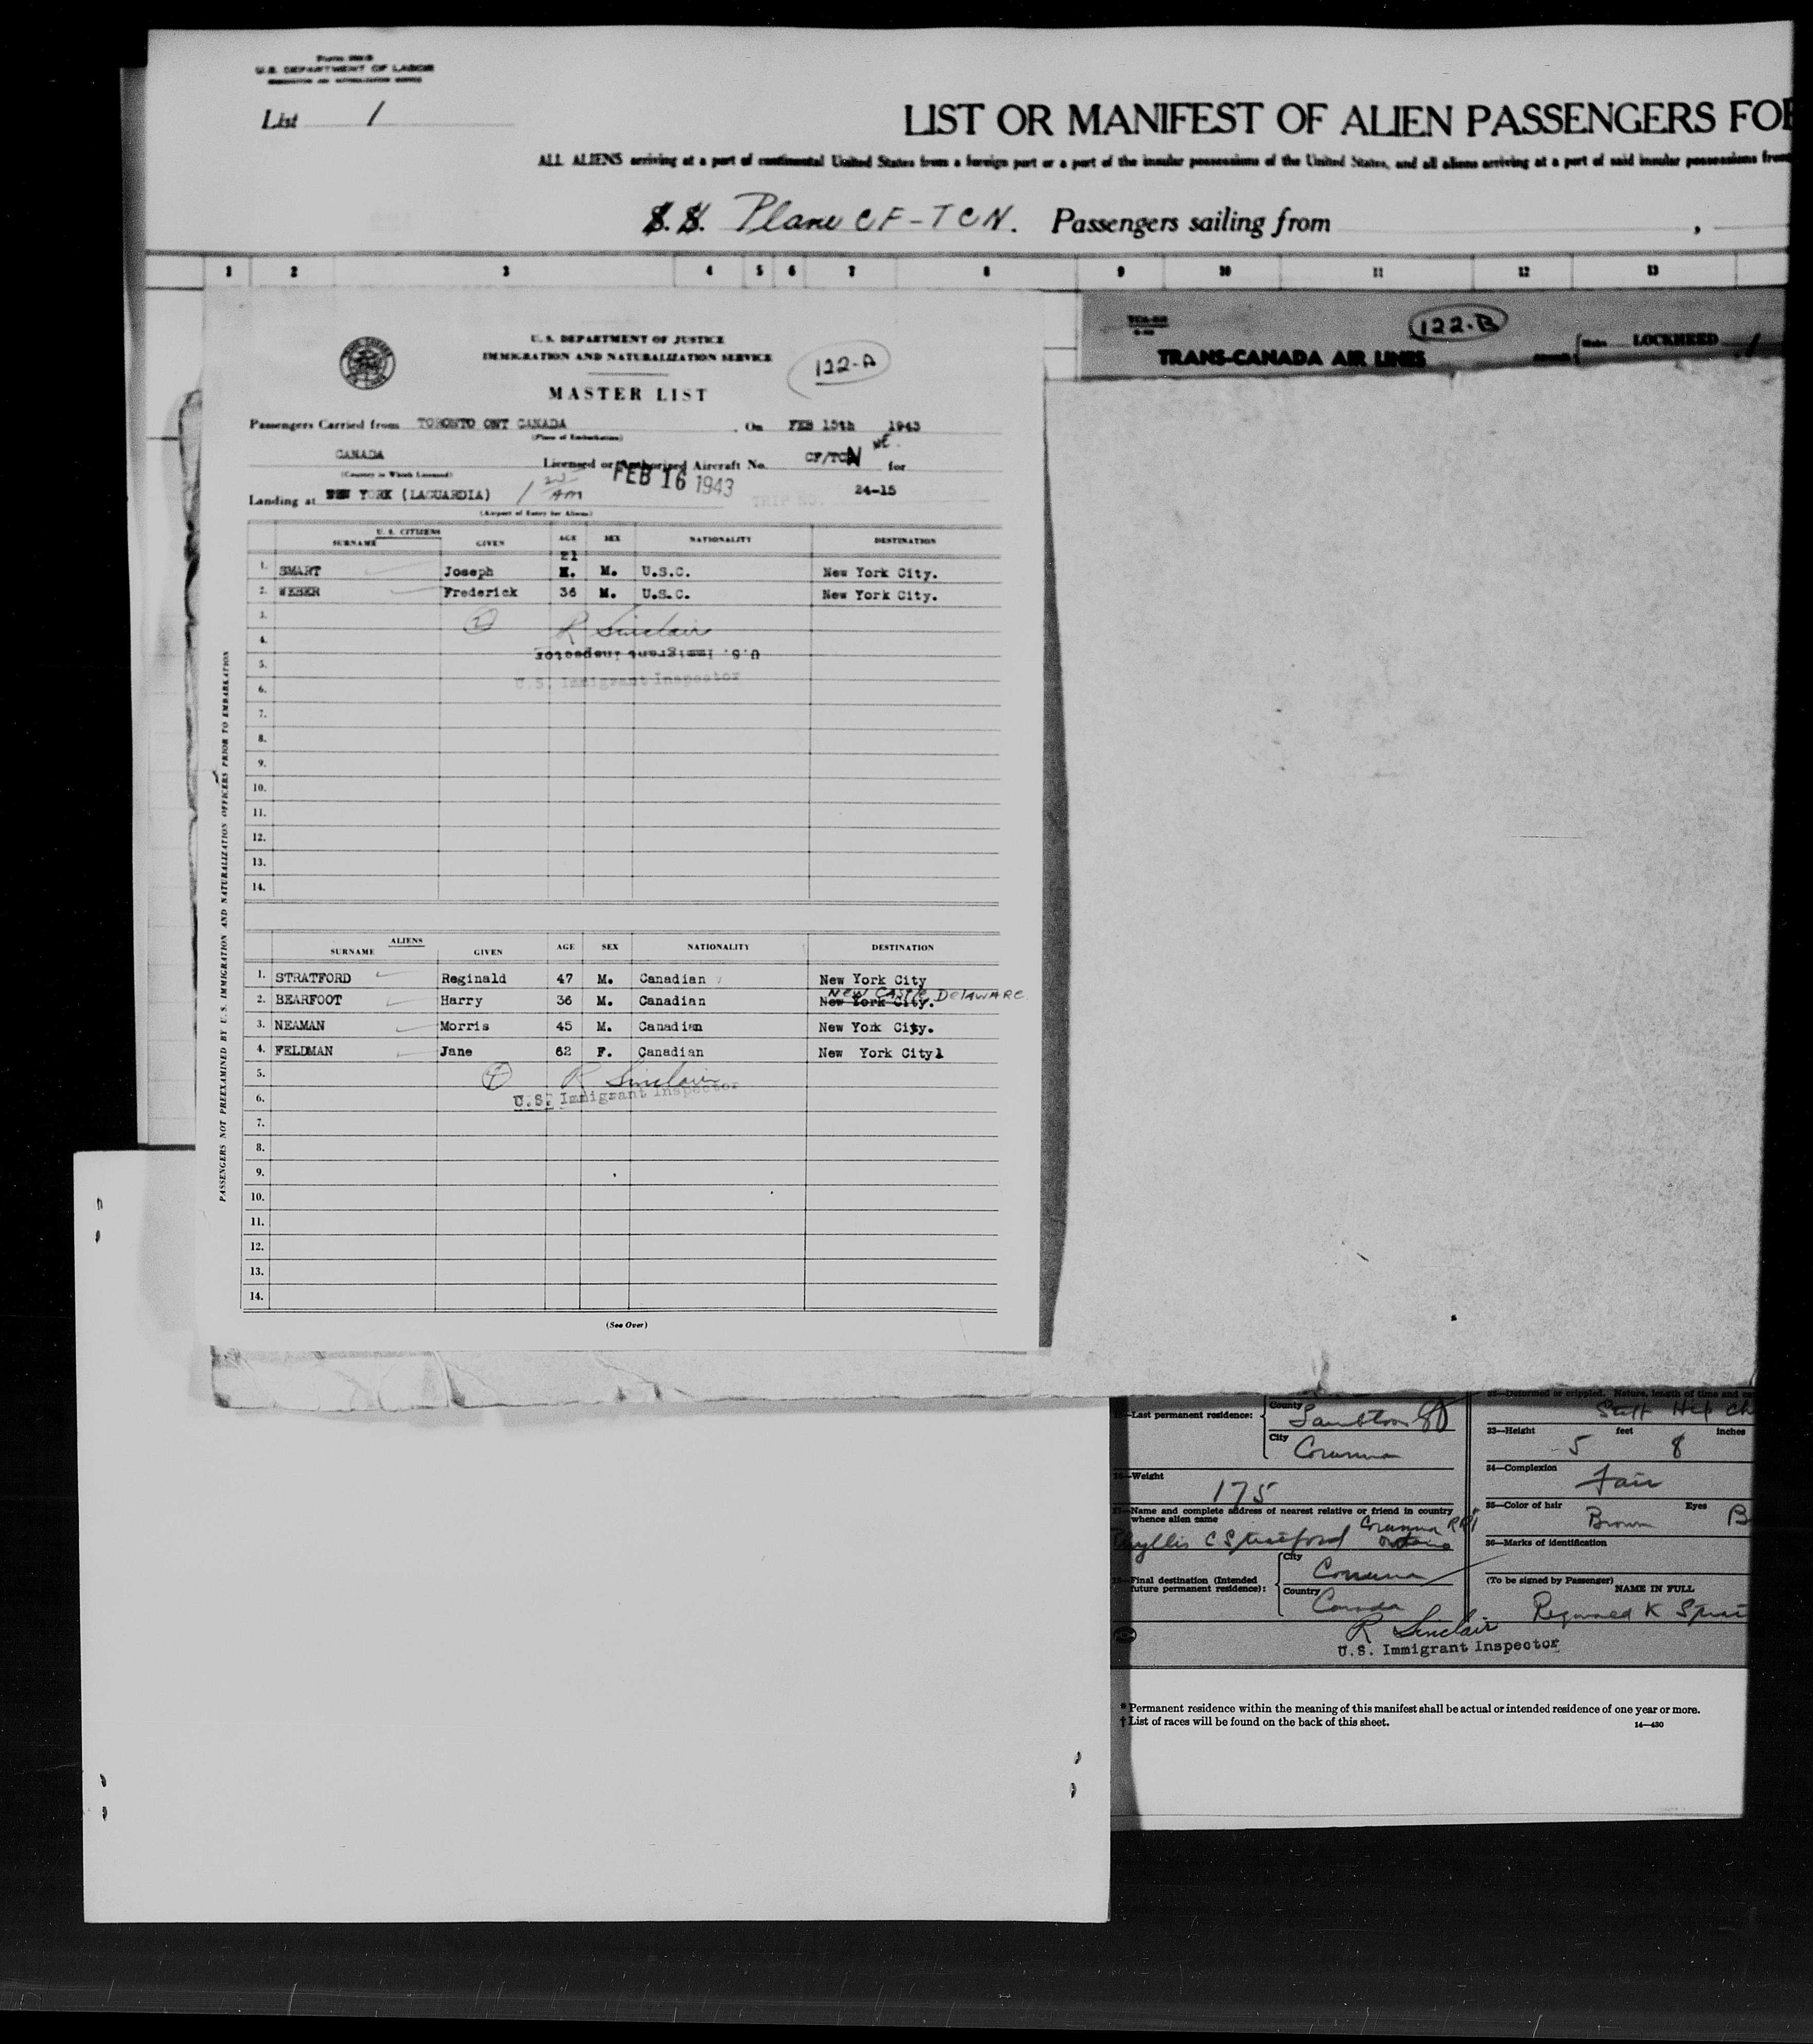 U.S. DEPARTMENT OF LABOR
List 1
LIST OR MANIFEST OF ALIEN PASSENGERS FOR
ALL ALIENS arriving at a port of continental United States from a foreign port or a port of the insular possessions of the United States, and all aliens arriving at a port of said insular possessions from
S.S. Plane CF-TCN. Passengers sailing from
1 2 3 4 5 6 7 8 9 10 11 12 13
U. S. DEPARTMENT OF JUSTICE
IMMIGRATION AND NATURALIZATION SERVICE
122-A
MASTER LIST
Passengers Carried from TORONTO ONT CANADA On FEB 15th 1943
(Place of Embarkation)
CANADA Licensed or Authorized Aircraft No. CF/TCN for
(Country in Which Licensed)
FEB 16 1943
Landing at NEW YORK (LAGUARDIA) 1 AM TRIP NO. 24-15
(Airport of Entry for Aliens)
U. S. CITIZENS
SURNAME GIVEN AGE SEX NATIONALITY DESTINATION
21
1. SMART Joseph M. U.S.C. New York City.
2. WEBER Frederick 36 M. U.S.C. New York City.
3. 2
4. R Sinclair
5. U.S. Immigrant Inspector
6. U.S. Immigrant Inspector
7.
8.
9.
10.
11.
12.
13.
14.
ALIENS
SURNAME GIVEN AGE SEX NATIONALITY DESTINATION
1. STRATFORD Reginald 47 M. Canadian New York City
NEW CASTLE DELAWARE
2. BEARFOOT Harry 36 M. Canadian New York City.
3. NEAMAN Morris 45 M. Canadian New York City.
4. FELDMAN Jane 62 F. Canadian New York City1
5. 4 R Sinclair
6. U.S. Immigrant Inspector
7.
8.
9.
10.
11.
12.
13.
14.
(See Over)
PASSENGERS NOT PREEXAMINED BY U. S. IMMIGRATION AND NATURALIZATION OFFICERS PRIOR TO EMBARKATION
122-B
TRANS-CANADA AIR LINES
LOCKHEED
Last permanent residence: County Lambton
City Corunna
Weight 175
Name and complete address of nearest relative or friend in country
whence alien came
Phyllis C Stratford Corunna RR1
Ontario
Final destination (Intended
future permanent residence): City Corunna
Country Canada
Deformed or crippled. Nature, length of time and
Stiff Hip
33—Height 5 feet 8 inches
34—Complexion Fair
35—Color of hair Brown Eyes B
36—Marks of identification
(To be signed by Passenger)
NAME IN FULL
Reginald K Strat
R Sinclair
U.S. Immigrant Inspector
* Permanent residence within the meaning of this manifest shall be actual or intended residence of one year or more.
† List of races will be found on the back of this sheet.
14—430